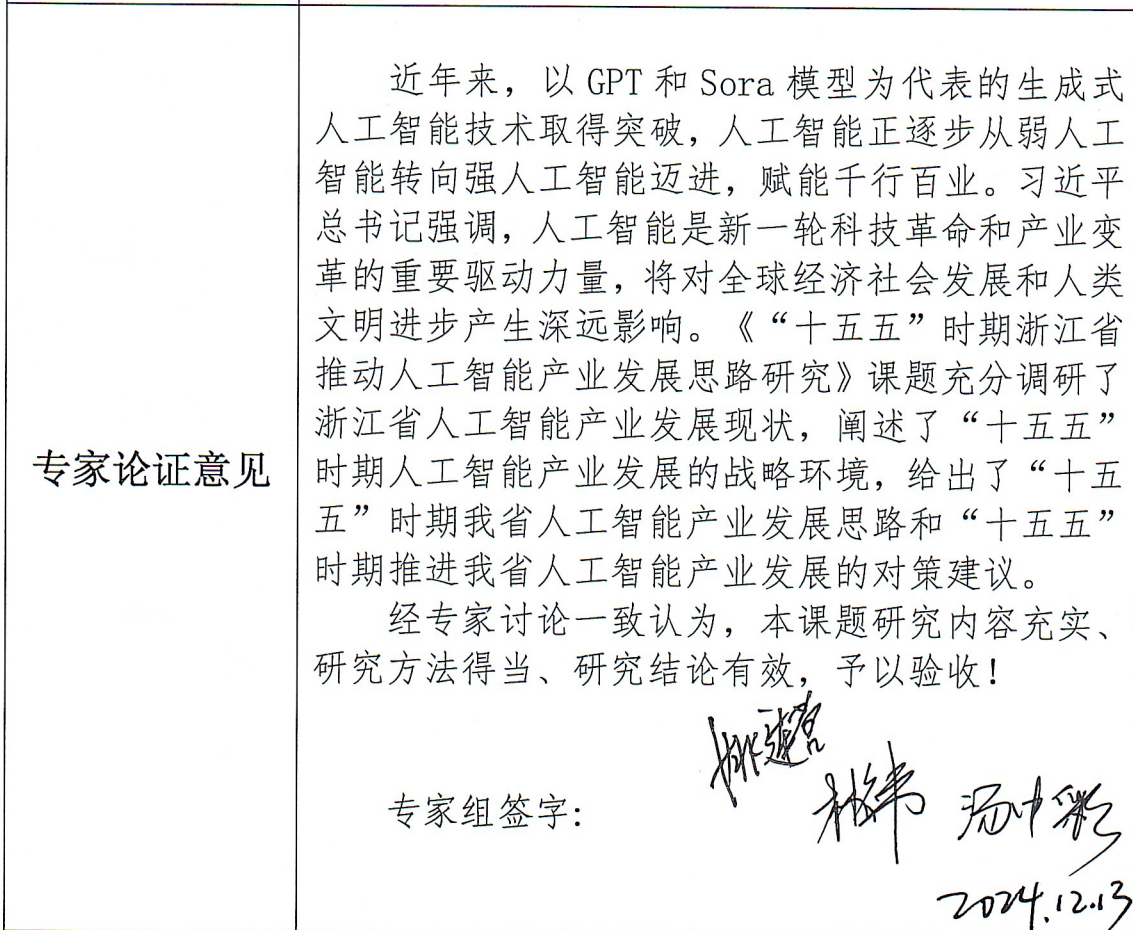 专家论证意见
近年来，以 GPT 和 Sora 模型为代表的生成式
人工智能技术取得突破，人工智能正逐步从弱人工
智能转向强人工智能迈进，赋能千行百业。习近平
总书记强调，人工智能是新一轮科技革命和产业变
革的重要驱动力量，将对全球经济社会发展和人类
文明进步产生深远影响。《“十五五”时期浙江省
推动人工智能产业发展思路研究》课题充分调研了
浙江省人工智能产业发展现状，阐述了“十五五”
时期人工智能产业发展的战略环境，给出了“十五
五”时期我省人工智能产业发展思路和“十五五”
时期推进我省人工智能产业发展的对策建议。
经专家讨论一致认为，本课题研究内容充实、
研究方法得当、研究结论有效，予以验收！
专家组签字：
2024.12.13